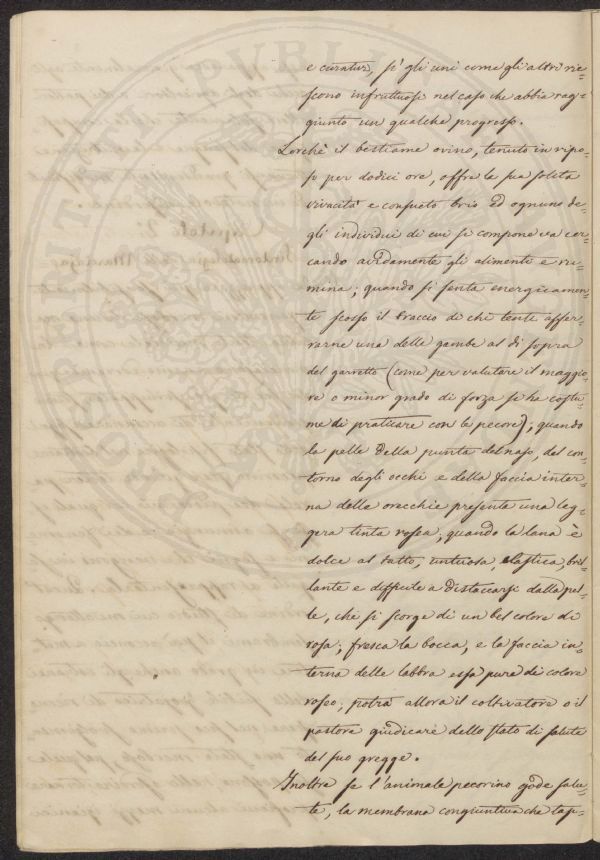 e curatur, se gli uni come gli altri rie=
scono infruttuosi nel caso che abbia rag=
giunto un qualche progresso.
Lorchè il bestiame ovino, tenuto in ripo=
so per dodici ore, offre la sua solita
vivacità e consueto brio ed ognuno de=
gli individui di cui si compone va cer=
cando avidamente gli alimenti e ru=
mina; quando si senta energicamen=
te scosso il braccio di chi tenti affer=
rarne una delle gambe al di sopra
del garretto (come per valutare il maggio=
re o minor grado di forza si ha costu=
me di pratticare con le pecore); quando
la pelle della punta del naso, del con=
torno degli occhi e della faccia inter=
na delle orecchie presenta una leg=
gera tinta rosea; quando la lana è
dolce al tatto, untuosa, elastica, bril=
lante e difficile a distaccarsi dalla pel=
le, che si scorge di un bel colore di
rosa; fresca la bocca, e la faccia in=
terna delle labbra essa pure di colore
roseo; potrà allora il coltivatore o il
pastore giudicare dello stato di salute
del suo gregge.
Inoltre se l'animale pecorino gode salu=
te, la membrana congiuntiva che tap=